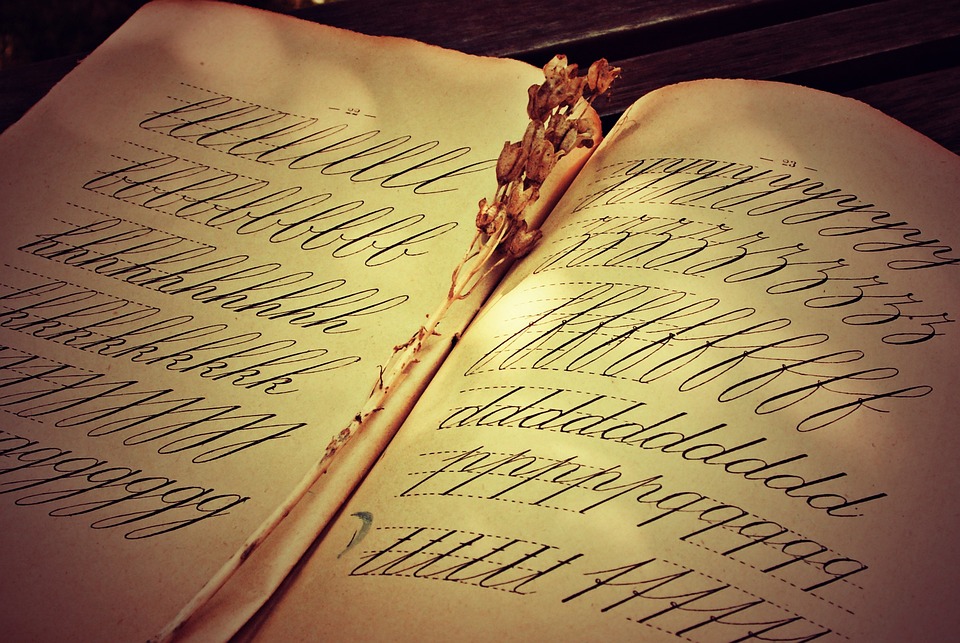 - 22 -
lllllllllll
bbbbbbbbbbb
hhhhhhhhhhh
kkkkkkkkkk
ggggggggg
- 23 -
yyyyyyyyyyy
zzzzzzzzzzz
fffffffffff
ddddddddddddd
pppppppqqqqqq
ttttttt